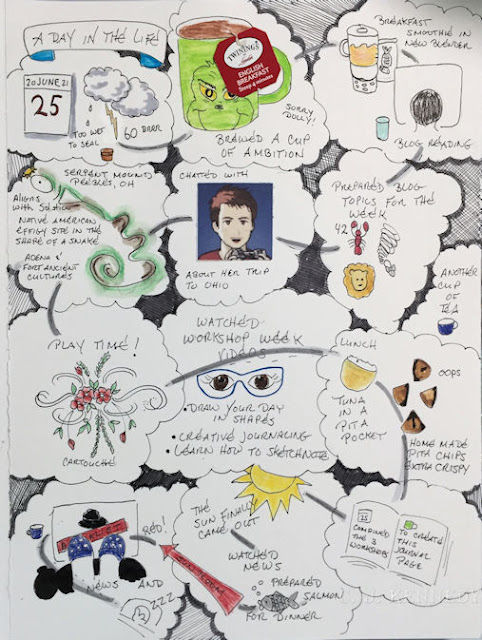 A DAY IN THE LIFE
20 JUNE, 21
25
TOO WET
TO SEAL
60
BRRR
TWININGS
of London
ENGLISH
BREAKFAST
Steep 4 minutes
SORRY
DOLLY!
BREWED A CUP
OF AMBITION
BREAKFAST
SMOOTHIE IN
NEW BLENDER
BLOG READING
SERPENT MOUND
PEEBLES, OH
Aligns
with Solstice
NATIVE AMERICAN
EFFIGY SITE IN THE
SHAPE OF A SNAKE
ADENA &
FORT ANCIENT
CULTURES
CHATTED WITH
ABOUT HER TRIP
TO OHIO
PREPARED BLOG
TOPICS FOR THE
WEEK
42
ANOTHER
CUP
OF
TEA
PLAY TIME!
CARTOUCHE
WATCHED
WORKSHOP WEEK
VIDEOS
• DRAW YOUR DAY
IN SHAPES
• CREATIVE JOURNALING
• LEARN HOW TO SKETCHNOTE
LUNCH
TUNA
IN A
PITA
POCKET
OOPS
HOME MADE
PITA CHIPS
EXTRA CRISPY
RED!
NEWS AND
ZZZ
THE
SUN FINALLY
CAME OUT
WATCHED
NEWS
PREPARED
SALMON
FOR DINNER
25
COMBINED
THE 3
WORKSHOPS
TO CREATE
THIS
JOURNAL
PAGE